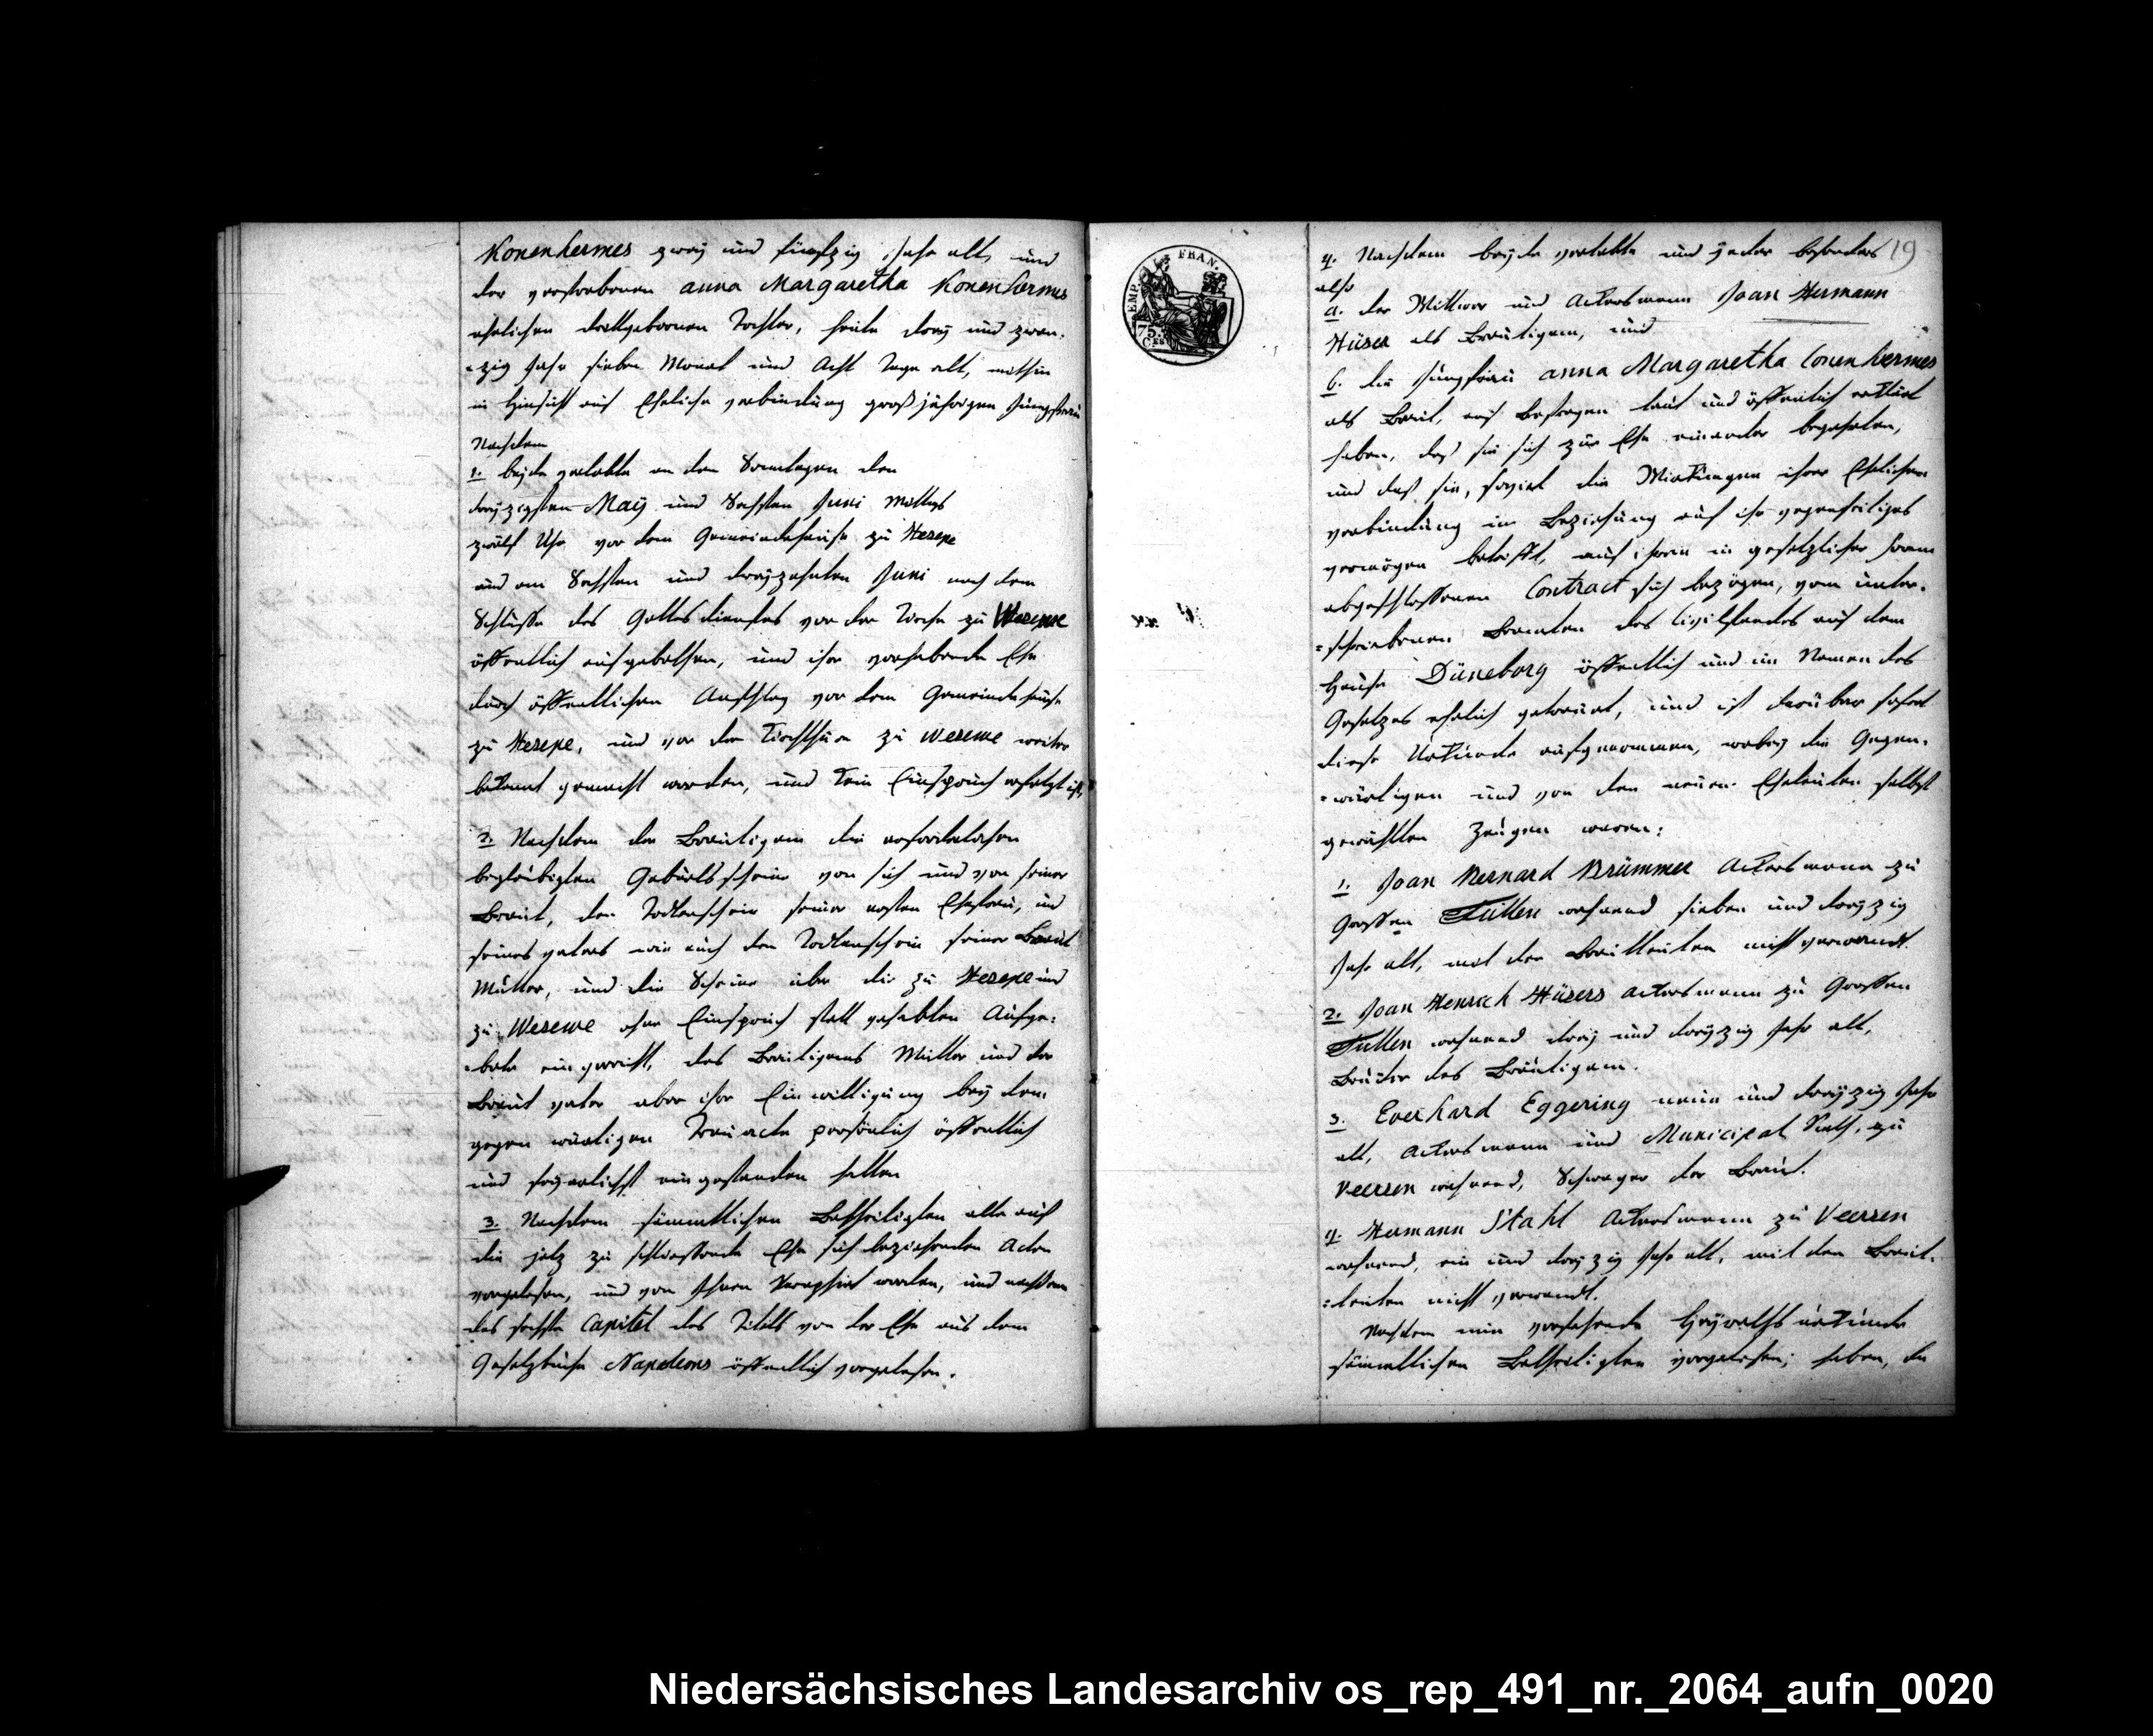 Konenhermes zweÿ und fünfzig Jahr alt, und
der verstorbenen Anna Margaretha Konenhermes
ehelichen drittgebornen Tochter, heute dreÿ und zwan-
-zig Jahr sieben Monat und Acht Tage alt, mithin
in Hinsicht auf Eheliche verbindung großjährigen Jungfrau
Nachdem
1. beÿde verlobte an den Sonntagen den
dreÿzigsten Maÿ und Sechsten Juni Mittags
zwölf Uhr vor dem Gemeindehause zu Hesepe
und am Sechsten und dreÿzehnten Juni nach dem
Schlusse des Gottesdienstes vor der Kirche zu Wesuwe
öffentlich aufgebothen, und ihre vorhabende Ehe
durch öffentlichen Anschlag vor dem Gemeindehause
zu Hesepe, und vor der Kirchthüre zu Wesuwe weiter
bekannt gemacht worden, und kein Einspruch erfolgt ist,
2. Nachdem der Bräutigam die erforderlichen
beglaubigten Geburtsscheine von sich und von seiner
Braut, den Todtenschein seiner ersten Ehefrau, und
seines vaters wie auch den Todtenschein seiner Braut
Mutter, und die Scheine über die zu Hesepe und
zu Wesuwe ohne Einspruch statt gehabten Aufge-
-bote eingereicht, des Bräutigams Mutter und der
Braut vater aber ihre Einwilligung beÿ dem
gegenwärtigen Trauacte persönlich öffentlich
und feÿerlichst eingestanden hatten
3. Nachdem sämmtlichen Betheiligten alle auf
die jetz zu schliessende Ehe sich beziehenden Acten
vorgelesen, und von Ihnen Paraphirt worden, und nachdem
das sechste Capitel des Titels von der Ehe aus dem
Gesetzbuche Napoleons öffentlich vorgelesen.
EMP. FRAN.
75.
Ces
19
4. Nachdem beÿde verlobte und jeder besonders
also
a. der Wittwer und Ackersmann Joan Hermann
Hüser als Bräutigam, und
b. die Jungfrau Anna Margaretha Conenhermes
als Braut, auf Befragen laut und öffentlich erklärt
haben, daß sie sich zur Ehe einander begehrten,
und daß sie, soviel die Wirkungen ihrer Ehelichen
verbindung in Beziehung auf ihr gegenseitiges
vermögen betrifft, auf ihren in gesetzlicher Form
abgeschlossenen Contract sich bezögen, vom unter-
-schriebenen Beamten des Civilstandes auf dem
Hause Düneborg öffentlich und im Namen des
Gesetzes ehelich getrauet, und ist darüber sofort
diese Urkunde aufgenommen, wobeÿ die Gegen-
-wärtigen und von den neuen Eheleuten selbst
gewählten Zeugen waren:
1. Joan Bernard Brümmer Ackersmann zu
Grossen Fullen wohnend sieben und dreÿzig
Jahr alt, mit den Brautleuten nicht verwandt.
2. Joan Henrich Hüsers Ackersmann zu Grossen
Fullen wohnend dreÿ und dreÿzig Jahr alt,
Bruder des Bräutigam.
3. Everhard Eggering neun und dreÿzig Jahr
alt, Ackersmann und Municipal Rath, zu
Veersen wohnend, Schwager der Braut.
4. Hermann Stahl Ackersmann zu Veersen
wohnend, ein und dreÿzig Jahr alt, mit den Braut-
-leuten nicht verwandt.
Nachdem nun vorstehende Heÿrathsurkunde
sämmtlichen Betheiligten vorgelesen; haben, die
Niedersächsisches Landesarchiv os_rep_491_nr._2064_aufn_0020